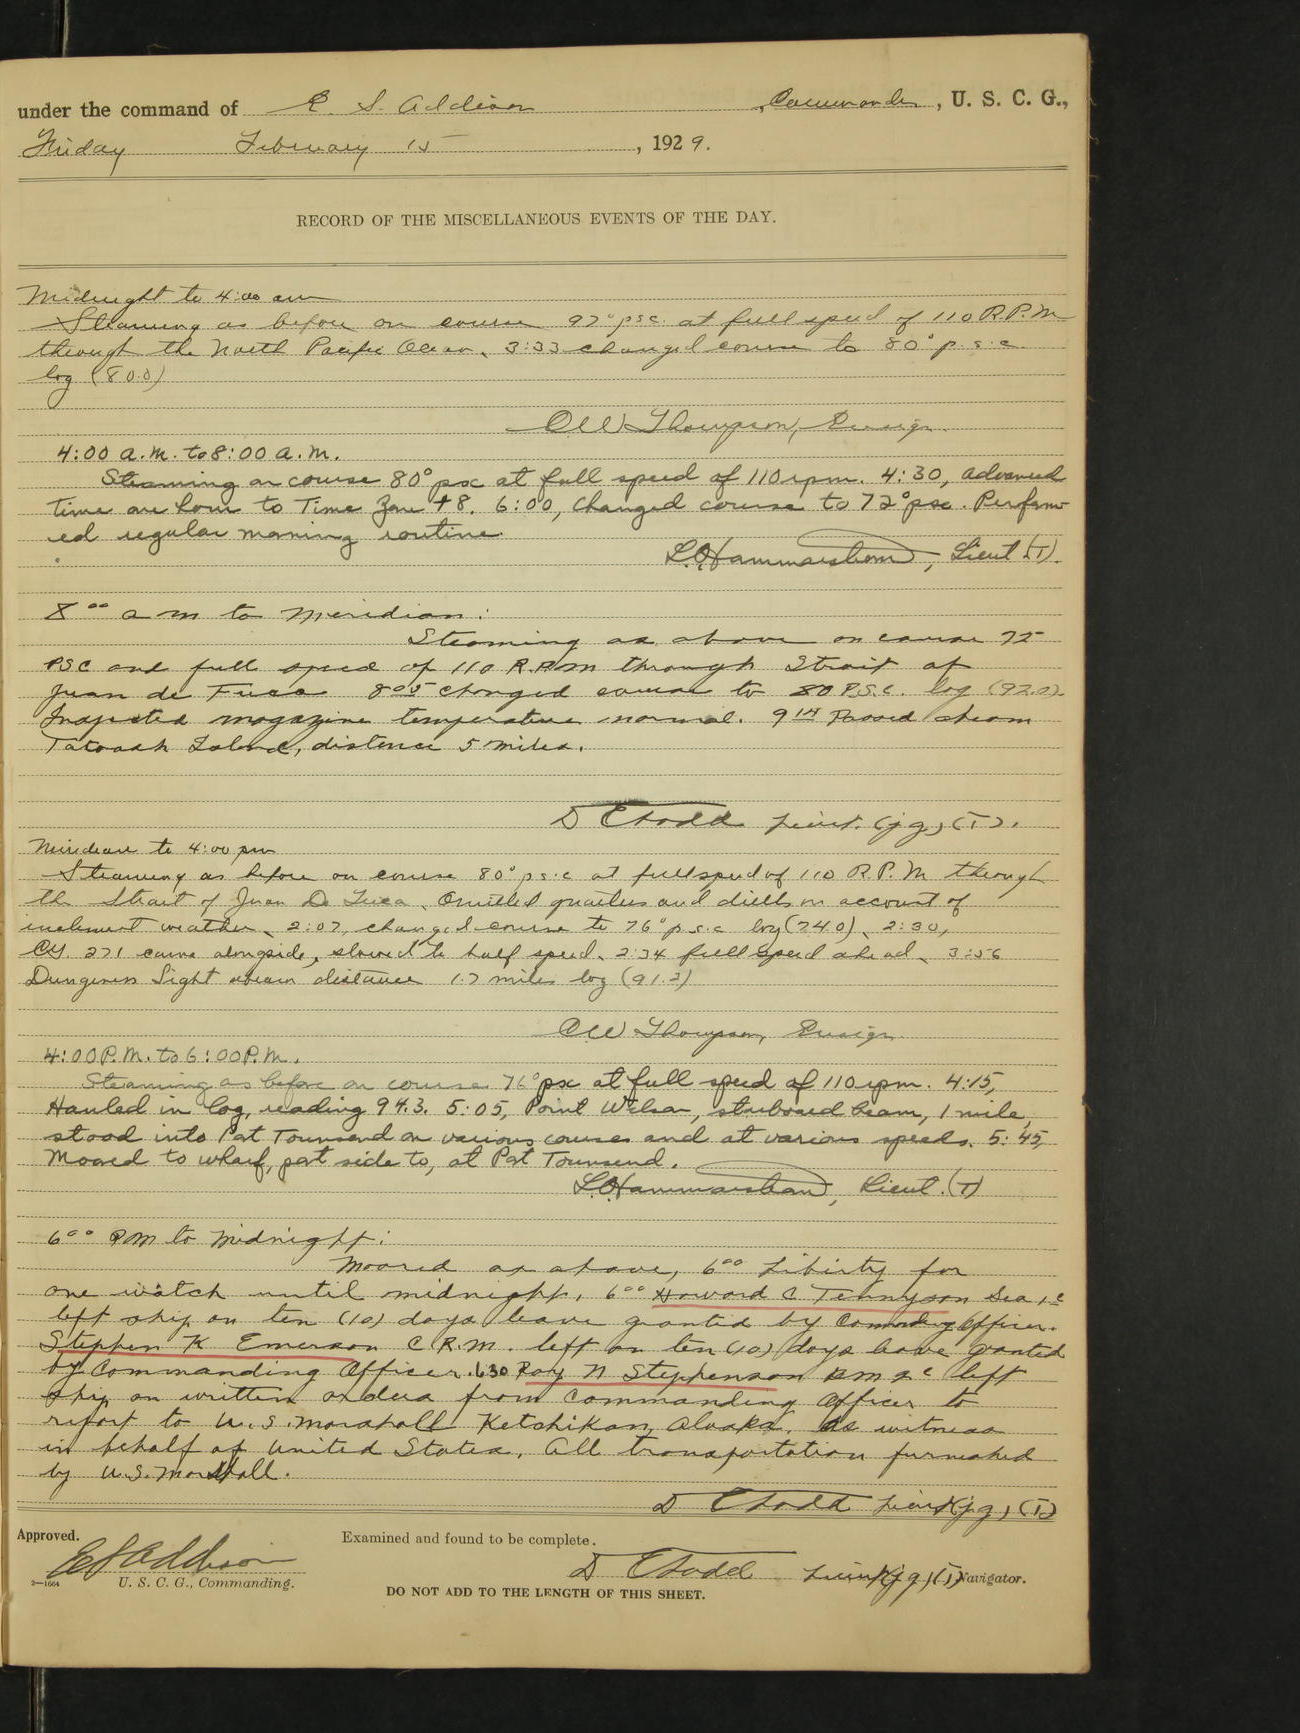 under the command of E. S. Addison, Commander, U. S. C. G.,
Friday February 15, 1929.
RECORD OF THE MISCELLANEOUS EVENTS OF THE DAY.
Midnight to 4:00 am
Steaming as before on course 97° psc. at full speed of 110 R.P.M
through the North Pacific Ocean. 3:33 changed course to 80° p.s.c.
log (80.0)
O W Thompson, Ensign.
4:00 a.m. to 8:00 a.m.
Steaming on course 80° psc at full speed of 110 rpm. 4:30, advanced
time one hour to Time Zone +8. 6:00, changed course to 72° psc. Perform-
ed regular morning routine.
L.O. Hammarstrom, Lieut (T).
8⁰⁰ a m to Meridian:
Steaming as above on course 72
P.S.C and full speed of 110 R.P.M through Strait of
Juan de Fuca 8⁰⁵ changed course to 80 P.S.C. log (92.0).
Inspected magazine temperature normal. 9 Passed abeam
Tatoosh Island, distance 5 miles.
D E Todd Lieut. (jg) (T).
Meridian to 4:00 pm
Steaming as before on course 80° p.s.c at full speed of 110 R.P.M through
the Strait of Juan De Fuca. Omitted quarters and drills on account of
inclement weather. 2:07, changed course to 76° p.s.c log (74.0). 2:30,
CG. 271 came alongside, slowed to half speed. 2:34 full speed ahead. 3:56
Dungeness Light abeam distance 1.7 miles log (91.2)
O W Thompson, Ensign.
4:00 P.M. to 6:00 P.M.
Steaming as before on course 76° psc at full speed of 110 rpm. 4:15,
Hauled in log, reading 94.3. 5:05, Point Wilson, starboard beam, 1 mile,
stood into Port Townsend on various courses and at various speeds. 5:45,
Moored to wharf, port side to, at Port Townsend.
L.O. Hammarstrom, Lieut. (T)
6⁰⁰ PM to Midnight:
Moored as above, 6⁰⁰ Liberty for
one watch until midnight. 6⁰⁰ Howard C Tennyson Sea 1c
left ship on ten (10) days leave granted by Commanding Officer.
Stephen K Emerson C.R.M. left on ten (10) days leave granted
by Commanding Officer. 630 Roy N Stephenson left
ship on written orders from Commanding Officer to
report to U.S. Marshall Ketchikan, Alaska. as witness
in behalf of United States. All transportation furnished
by U.S. Marshall.
D E Todd Lieut (jg) (T)
Approved.
E S Addison
2—1664 U. S. C. G., Commanding.
Examined and found to be complete.
D E Todd Lieut (jg) (T) Navigator.
DO NOT ADD TO THE LENGTH OF THIS SHEET.